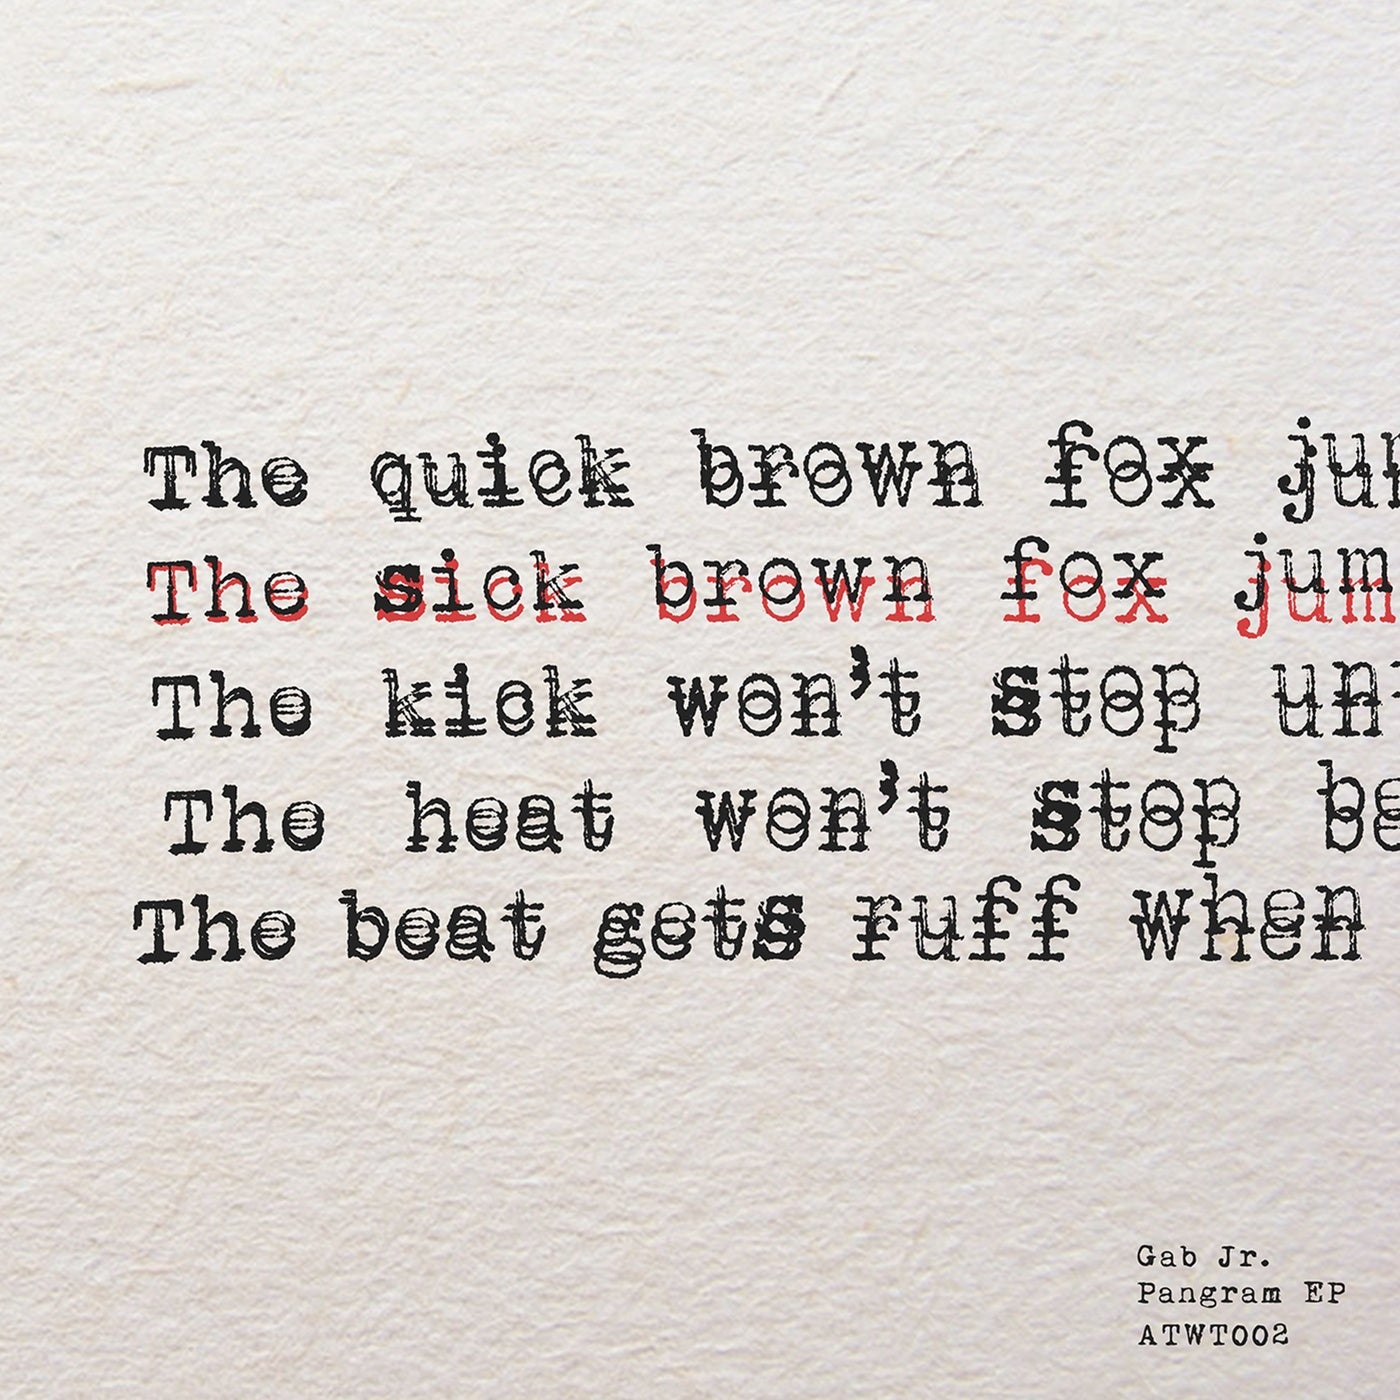 The quick brown fox jum
The sick brown fox jum
The kick won't stop unt
The heat won't stop be
The beat gets ruff when
Gab Jr.
Pangram EP
ATWT002